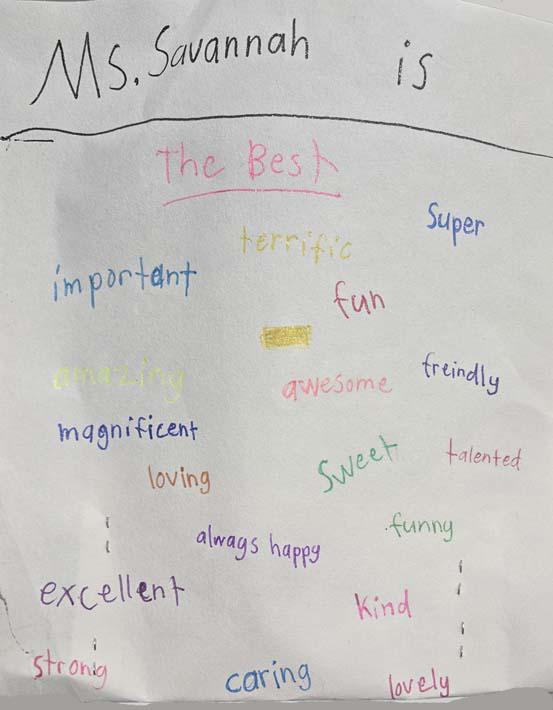 Ms. Savannah is
The Best
Super
terrific
important
fun
amazing
awesome
freindly
magnificent
loving
Sweet
talented
always happy
funny
excellent
Kind
strong
caring
lovely